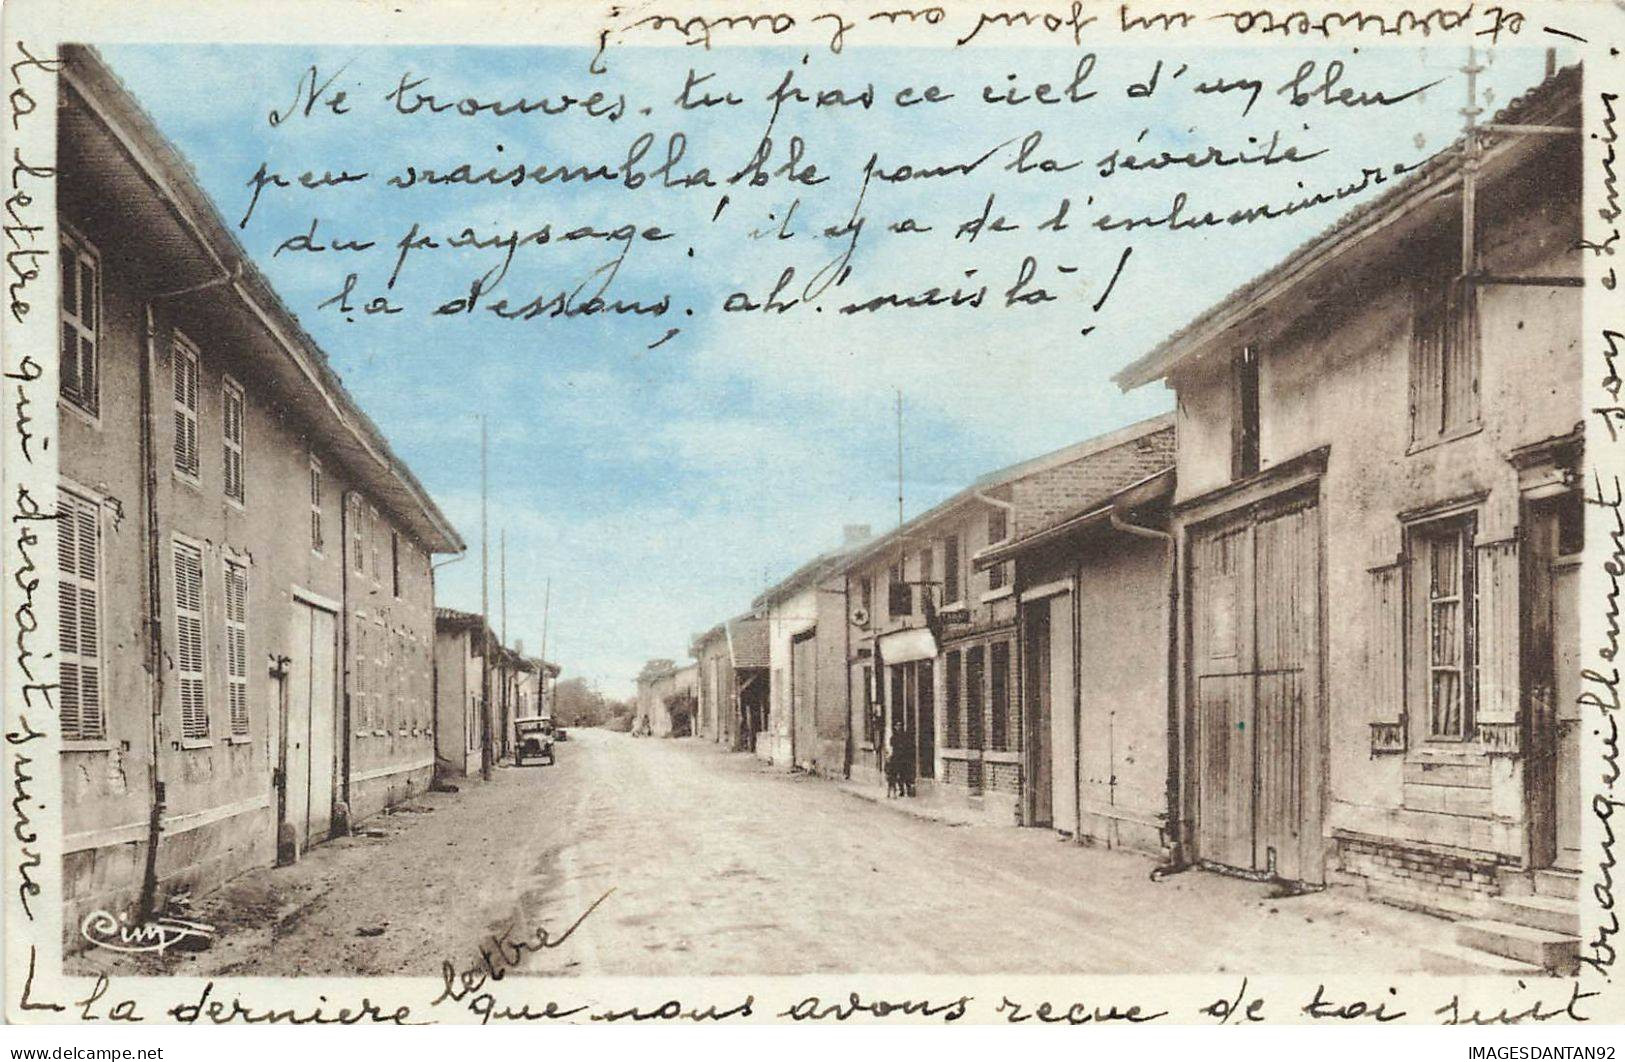 Ne trouves-tu pas ce ciel d'un bleu
peu vraisemblable pour la sévérité
du paysage! il y a de l'enluminure
là dessous, ah! mais là!
la lettre qui devait suivre
la derniere lettre que nous avons reçue de toi suit
tranquillement son chemin
et arrivera un jour ou
l'autre?
Cim
IMAGESDANTAN92